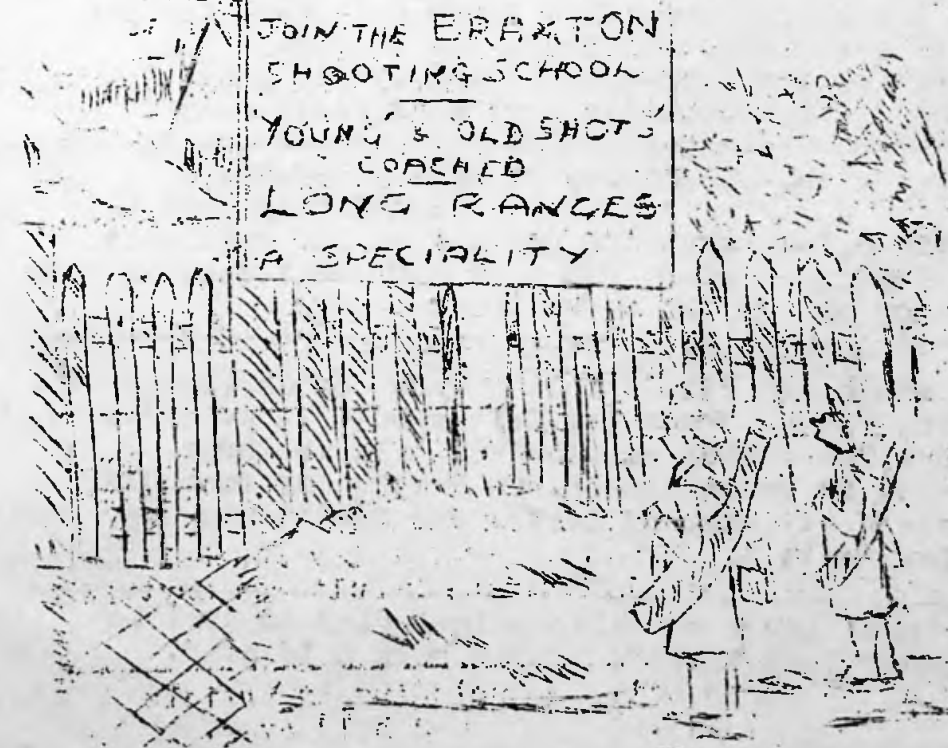 JOIN THE ERAXTON
SHOOTING SCHOOL
YOUNG & OLD SHOTS
COACHED
LONG RANGES
A SPECIALITY